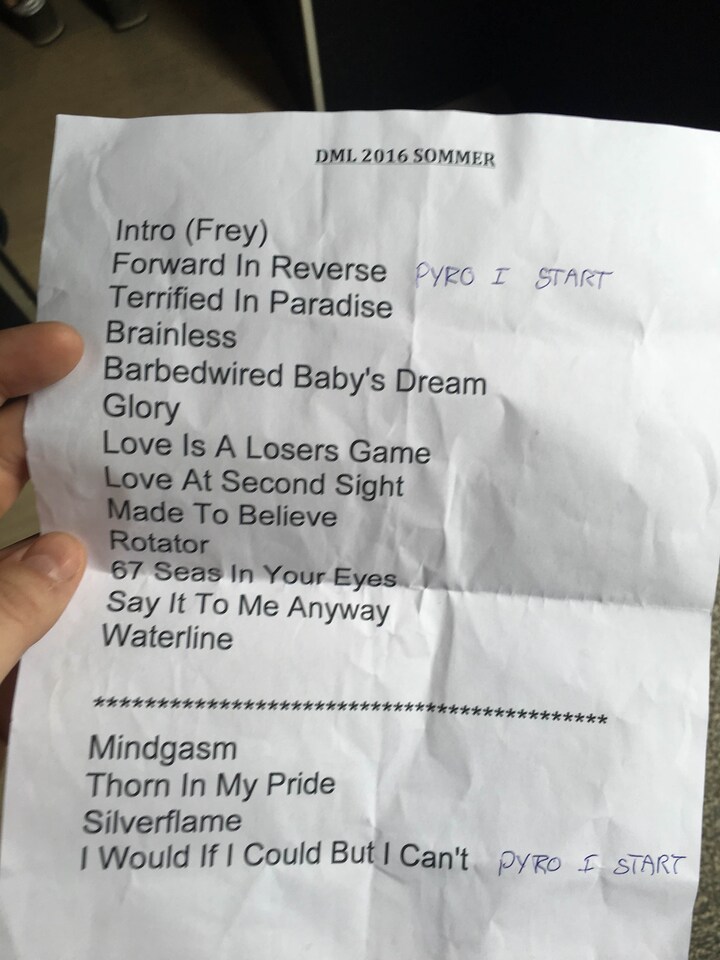 DML 2016 SOMMER
Intro (Frey)
Forward In Reverse PYRO I START
Terrified In Paradise
Brainless
Barbedwired Baby's Dream
Glory
Love Is A Losers Game
Love At Second Sight
Made To Believe
Rotator
67 Seas In Your Eyes
Say It To Me Anyway
Waterline
*******************************************
Mindgasm
Thorn In My Pride
Silverflame
I Would If I Could But I Can't PYRO I START